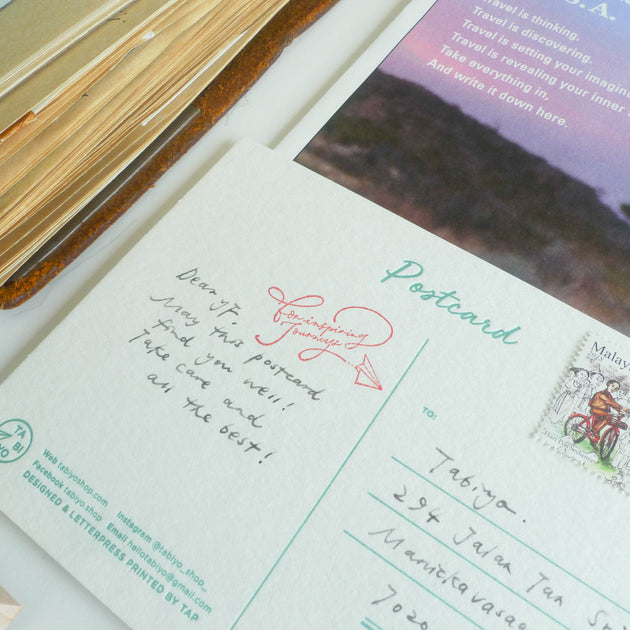 S.A.
Travel is thinking.
Travel is discovering.
Travel is setting your
Travel is revealing your inner
Take everything in.
And write it down here.
Postcard
Dear YF,
May this postcard
find you well!
Take care and
all the best!
for inspiring
Journeys
Malaysia
TO:
Tabiyo.
294 Jalan Tan
TABI
YO
Web tabiyoshop.com Instagram @tabiyo_shop_
Facebook tabiyo.shop Email hellotabiyo@gmail.com
DESIGNED & LETTERPRESS PRINTED BY TAP